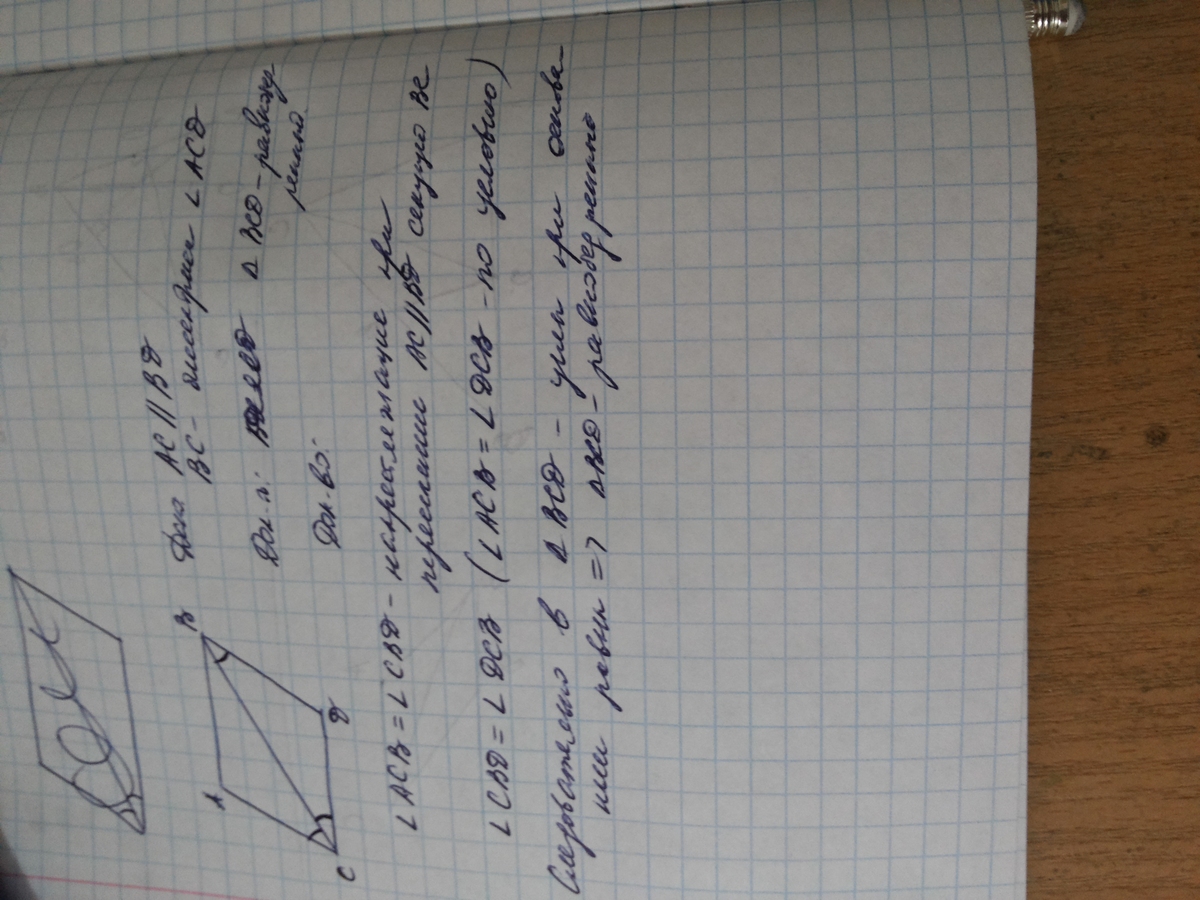 Дано AC || BD
BC - биссектриса ∠ ACD
Док-ть: Δ BCD - равнобед
ренно
Док-во:
A
B
C
D
∠ ACB = ∠ CBD - накрестлежащие при
пересечении AC || BD секущую BC
∠ CBD = ∠ DCB (∠ ACB = ∠ DCB - по условию)
Следовательно в Δ BCD - углы при основа
нии равны => Δ BCD - равнобедренно